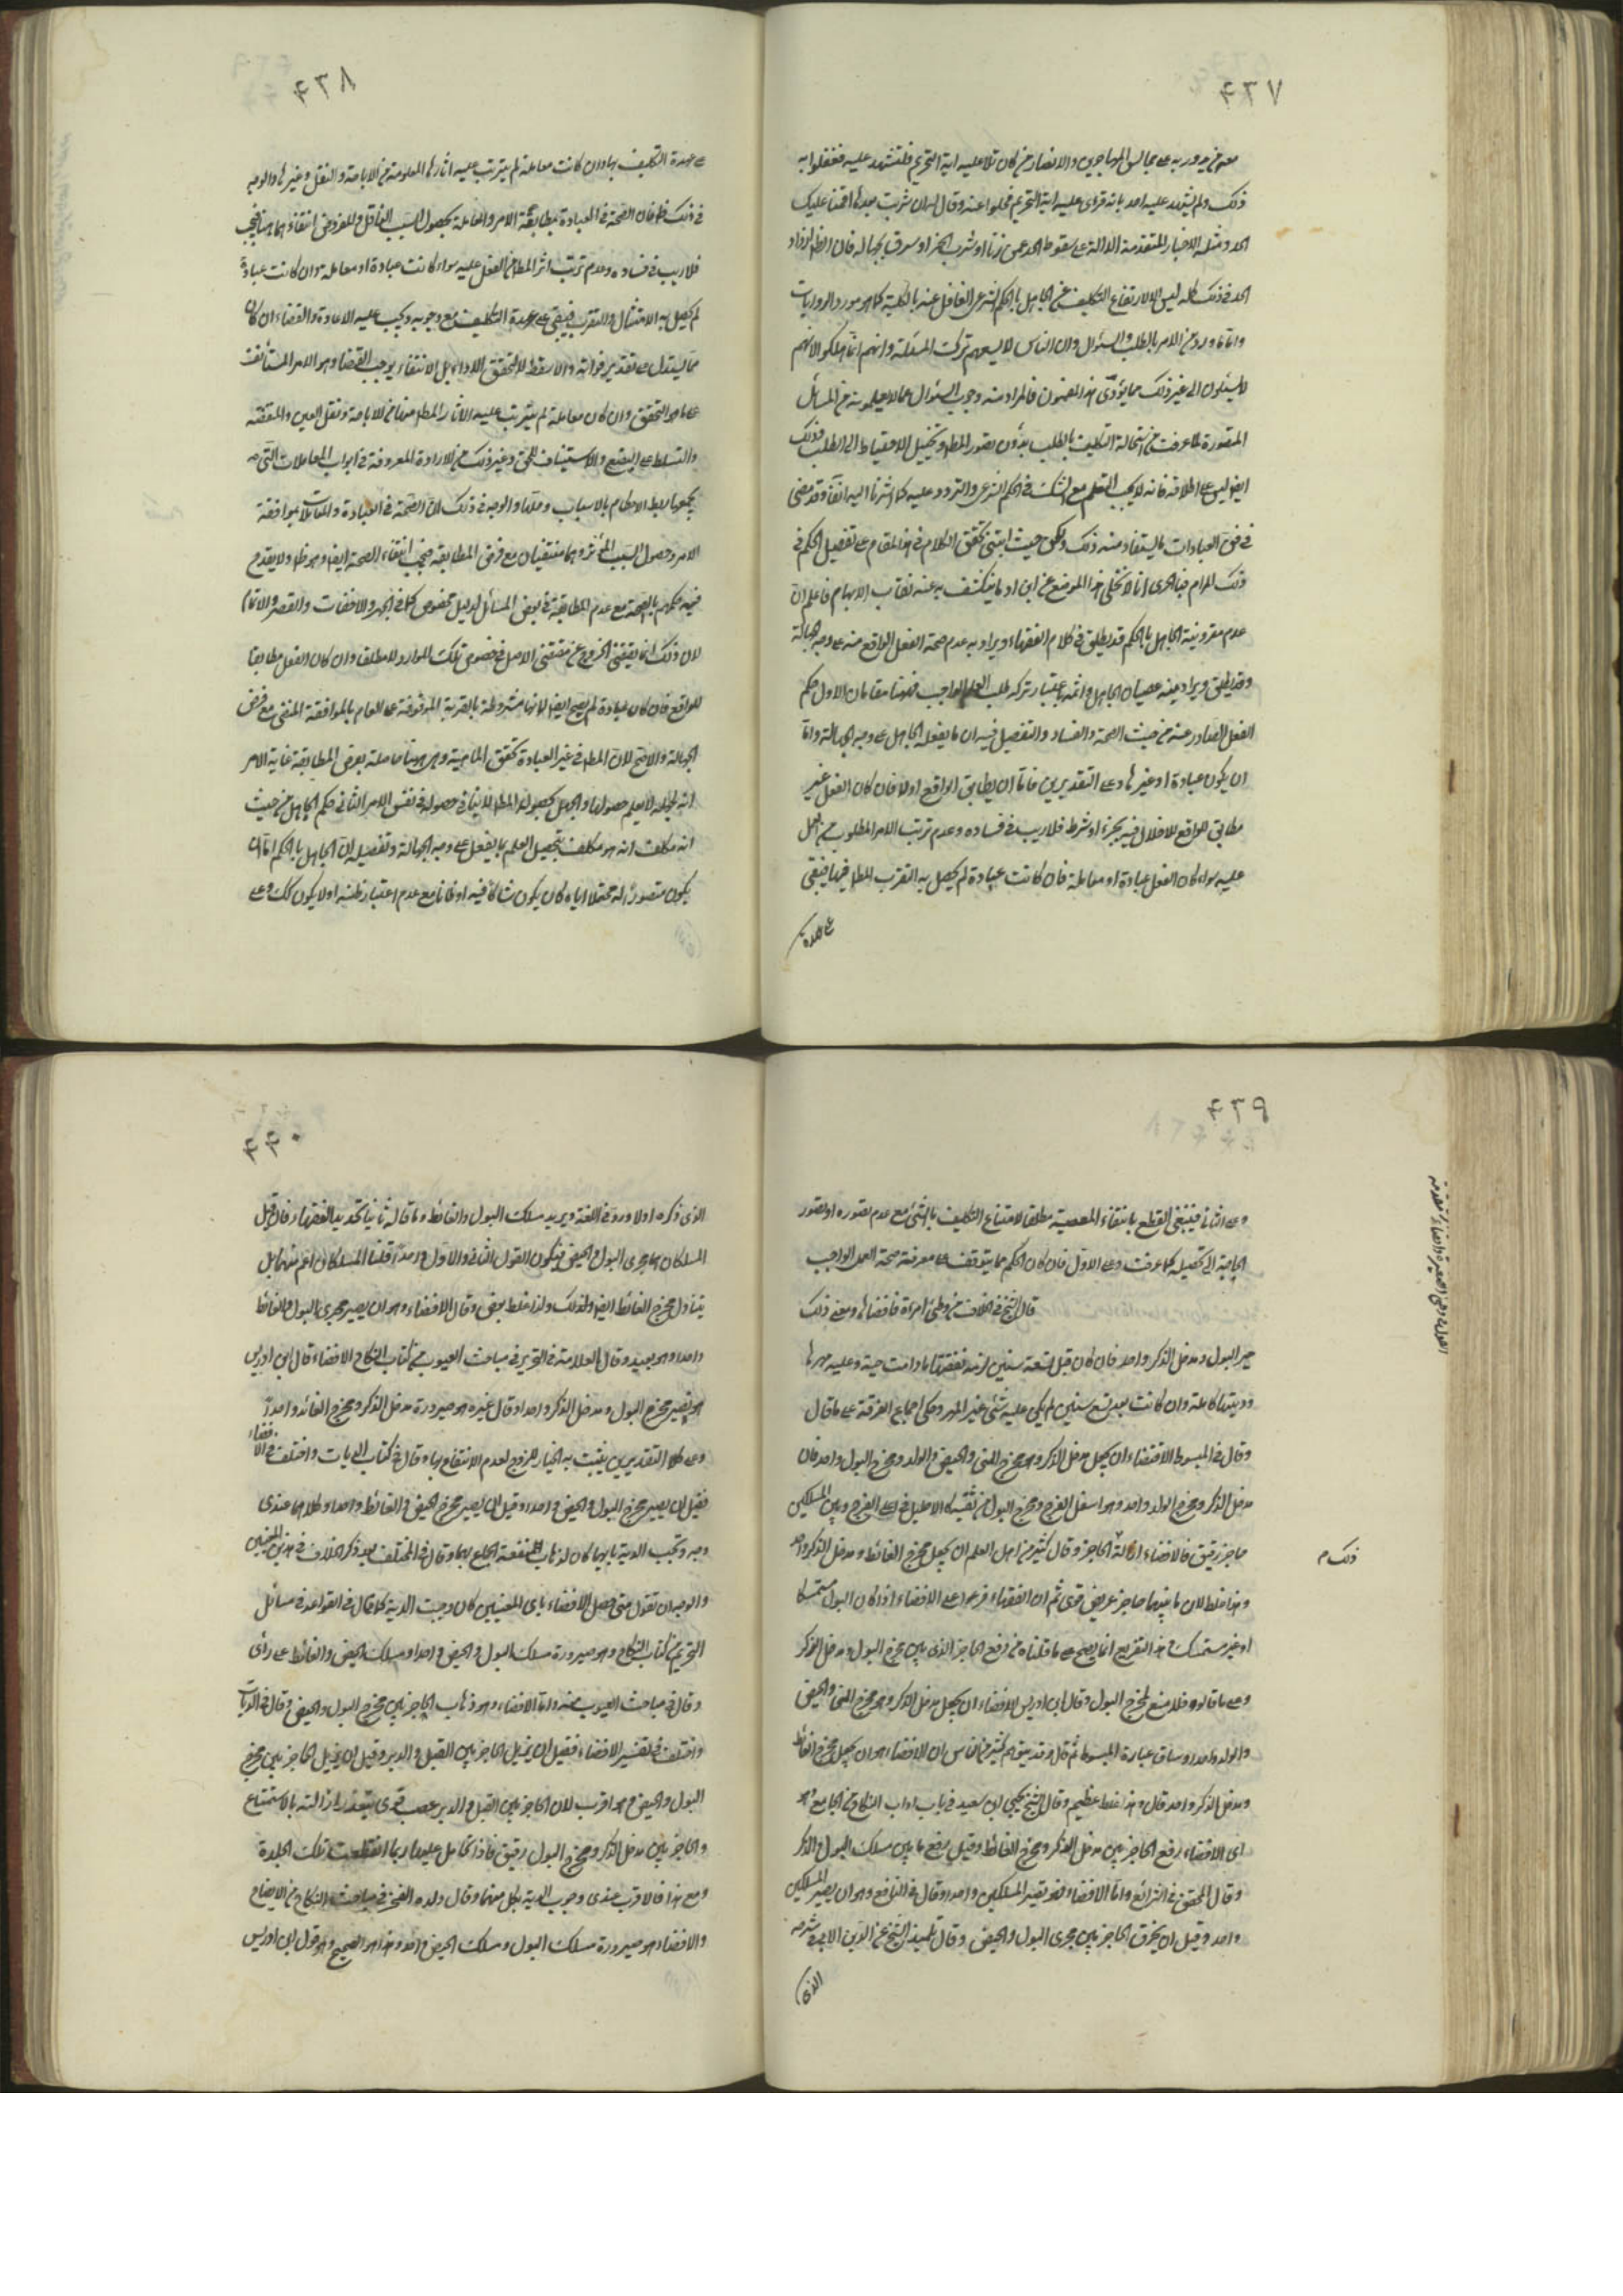 ٤٣٧
معه من يدور به على مجالس المهاجرين والانصار من كان تلا عليه اية التحريم فليشهد عليه ففعلوا به
ذلك ولم يشهد عليه احد بانه قرأ عليه اية التحريم فخلوا عنه وقال ان شربت بعدها اقمنا عليك
الحد ومثله الاخبار المتقدمة الدالة على سقوط الحد عمن زنا او شرب الخمر او سرق بجهالة فان
الحد في ذلك كله ليس الا لارتفاع التكليف عن الجاهل بالحكم الشرعي الغافل عنه بالكلية كما هو مورد الروايات
واما ما ورد من الامر بالطلب والسئوال وان الناس لا يسعهم ترك المسئلة وانهم انما هلكوا لانهم
لا يسئلون الى غير ذلك مما يؤدى هذا المضمون فالمراد منه وجوب السئوال عما لا يعلمونه من المسائل
المتصورة لما عرفت من استحالة التكليف بالطلب بدون تصور المط وتخييل الاحتياط الى الطلب وذلك
ايضا ليس على اطلاقه فانه لا يجب التعلم مع الشك في الحكم الشرعي والتردد عليه كما اشرنا اليه انفا وقد مضى
في العبادات ما يستفاد منه ذلك ولكن حيث تحقق الكلام في هذا المقام على تفصيل الحكم في
ذلك المرام فبالحرى انا لا نخلى هذا الموضع عن ايراد ما ينكشف به عنه نقاب الابهام فاعلم ان
عدم معذورية الجاهل بالحكم قد يطلق في كلام الفقهاء ويراد به عدم صحة الفعل الواقع منه على وجه الجهالة
وقد يطلق ويراد منه عصيان الجاهل واثمه باعتبار تركه طلب العلم الواجب فههنا مقامان الاول حكم
الفعل الصادر عنه من حيث الصحة والفساد والتفصيل فيه ان ما يفعله الجاهل على وجه الجهالة اما
ان يكون عبادة او غيرها وعلى التقديرين فاما ان يطابق الواقع اولا فان كان الفعل غير
مطابق للواقع للاخلال فيه بجزء او شرط فلا ريب في فساده وعدم ترتب الامر المطلوب من
عليه سواء كان الفعل عبادة او معاملة فان كانت عبادة لم يحصل به التقرب المط فيها فيبقى
على عهدة
٤٣٨
على عهدة التكليف بها وان كانت معاملة لم يترتب عليه اثارها المعلومة من الاباحة والنقل وغيرها والوجه
في ذلك ظ فان الصحة في العبادة بمطابقة الامر والمعاملة بحصول السبب الناقل والمفروض انتفاء
فلا ريب في فساده وعدم ترتب اثر المط من الفعل عليه سواء كانت عبادة او معاملة وان كانت عبادة
لم يحصل به الامتثال والتقرب فيبقى على عهدة التكليف مع وجوبه ويجب عليه الاعادة والقضاء ان كان
مما يستدل على تقدير فواته والا سقط لا لتحقق الاداء بل لانتفاء يوجب القضاء وهو الامر المستأنف
على ما هو التحقق وان كان معاملة لم يترتب عليه الاثار المط منها من الاباحة ونقل العين والمنفعة
والتسلط على البضع والاستيناف للحق وغير ذلك من الاثار المعروفة في ابواب المعاملات التي
يجمعها ربط الاحكام بالاسباب والوجه في ذلك ان الصحة في العبادة والمعاملات بموافقة
الامر وحصول السبب المؤثر وهما منتفيان مع فرض المطابقة فيجب انتفاء الصحة ايضا وهو ظ ولا يقدح
فيه حكمهم بالصحة مع عدم المطابقة في بعض المسائل لدليل مخصوص كما في الجهر والاخفات والقصر والاتمام
لان ذلك انما يقتضى الخروج عن مقتضى الاصل في خصوص تلك الموارد لا مطلقا وان كان الفعل مطابقا
للواقع فان كان عبادة لم يصح ايضا لانها مشروطة بالقربة الموقوفة على العلم بالموافقة المنفى مع فرض
الجهالة والا صح لان المط في غير العبادة تحقق الماهية وهي ههنا حاصلة بفرض المطابقة غاية الامر
انه لجهله لا يعلم حصولها والجهل بحصول المط لا ينافى حصوله في نفس الامر الثاني حكم الجاهل من حيث
انه مكلف انه هو مكلف بتحصيل العلم بما يفعل على وجه الجهالة وتفصيله ان الجاهل بالحكم اما ان
يكون متصورا له محتملا اياه كان يكون شاكا فيه او ظانا مع عدم اعتبار ظنه او لا يكون كك وعلى
٤٣٩
وعلى الثاني فينبغى القطع بانتفاء المعصية مطلقا لامتناع التكليف بالشئ مع عدم تصوره او تصور
الحاجة الى تحصيله كما عرفت وعلى الاول فان كان الحكم مما يتوقف على معرفته صحة العمل الواجب
قال الشيخ في الخلاف من وطئ امراة فافضاها ومعنى ذلك
صير البول ومدخل الذكر واحد فان كان قبل تسعة سنين لزمه نفقتها ما دامت حية وعليه مهرها
وديتها كاملة وان كانت بعد تسع سنين لم يكن عليه شئ غير المهر وحكى اجماع الفرقة على ما قال
وقال في المبسوط الافضاء ان يجعل مدخل الذكر وهو مخرج المنى والحيض والولد ومخرج البول واحد فان
مدخل الذكر ومخرج الولد واحد وهو اسفل الفرج ومخرج البول من ثقبة كالاحليل في اعلى الفرج وبين المسلكين
حاجز رقيق فالافضاء ازالة الحاجز وقال كثير من اهل العلم ان يجعل مخرج الغائط ومدخل الذكر واحد
وهذا غلط لان ما بينهما حاجز عريض قوى ثم ان الفقهاء فرعوا على الافضاء اذا كان البول مستمسكا
او غير مستمسك وهذا التفريع انما يصح على ما قلناه من رفع الحاجز الذي بين مخرج البول ومدخل الذكر
وعلى ما قالوه فلا منع لمخرج البول وقال ابن ادريس الافضاء ان يجعل مدخل الذكر وهو مخرج المنى والحيض
والولد واحد وساق عبارة المبسوط ثم قال وقد يتوهم كثير من الناس ان الافضاء هو ان يجعل مخرج الغائط
ومدخل الذكر واحد قال وهذا غلط عظيم وقال الشيخ يحيى ابن سعيد في باب اداب النكاح من الجامع هو
اى الافضاء رفع الحاجز بين مدخل الذكر ومخرج الغائط وقيل رفع ما بين مسلك البول والذكر
وقال المحقق في الشرائع واما الافضاء فهو تصير المسلكين واحدا وقال في النافع وهو ان يصير المسلكين
واحد وقيل ان يخرق الحاجز بين مجرى البول والحيض وقال تلميذ الشيخ عز الدين الابي في شرحه
الذى
ذلك م
٤٤٠
الذى ذكره اولا ورد في اللغة ويريد مسلك البول والغائط وما قاله ثانيا تحديد الفقهاء فان قيل
المسلكان هما مجرى البول والحيض فيكون القول الثانى والاول واحدا قلنا المسلكان اعم منهما بل
يتناول مخرج الغائط ايضا ولذلك ولذا غلط بعض وقال الافضاء وهو ان يصير مجرى البول والغائط
واحدا وهو بعيد وقال العلامة في التحرير في مباحث العيوب من كتاب النكاح الافضاء قال ابن ادريس
هو تصير مخرج البول ومدخل الذكر واحدا وقال غيره هو صيرورة مدخل الذكر ومخرج الغائط واحدا
وعلى كلا التقديرين يثبت به الخيار للزوج لعدم الانتفاع بها وقال في كتاب الديات واختلف في الافضاء
فقيل ان يصير مخرج البول والحيض واحدا وقيل ان يصير مخرج الحيض والغائط واحدا وكلاهما عندى
وجه وتجب الدية بايهما كان لذهاب منفعة الجماع بهما وقال في المختلف بعد ذكر الخلاف في هذين المعنيين
والوجه ان نقول متى حصل الافضاء باى المعنيين كان وجبت الدية كما قال في القواعد في مسائل
التحريم من كتاب النكاح وهو صيرورة مسلك البول والحيض واحدا ومسلك الحيض والغائط على رأى
وقال في مباحث العيوب منه واما الافضاء وهو ذهاب الحاجز بين مخرج البول والحيض وقال في الديات
واختلف في تفسير الافضاء فقيل ان يزيل الحاجز بين القبل والدبر وقيل ان يزيل الحاجز بين مخرج
البول والحيض وهو اقرب لان الحاجز بين القبل والدبر عصب قوى يتعذر ازالته بالاستمتاع
والحاجز بين مدخل الذكر ومخرج البول رقيق فاذا تحامل عليها ربما انقطعت تلك الجلدة
ومع هذا فالاقرب عندى وجوب الدية بكل منهما وقال ولده الفخر في مباحث النكاح من الايضاح
والافضاء هو صيرورة مسلك البول ومسلك الحيض واحد وهذا هو الصحيح وهو قول ابن ادريس